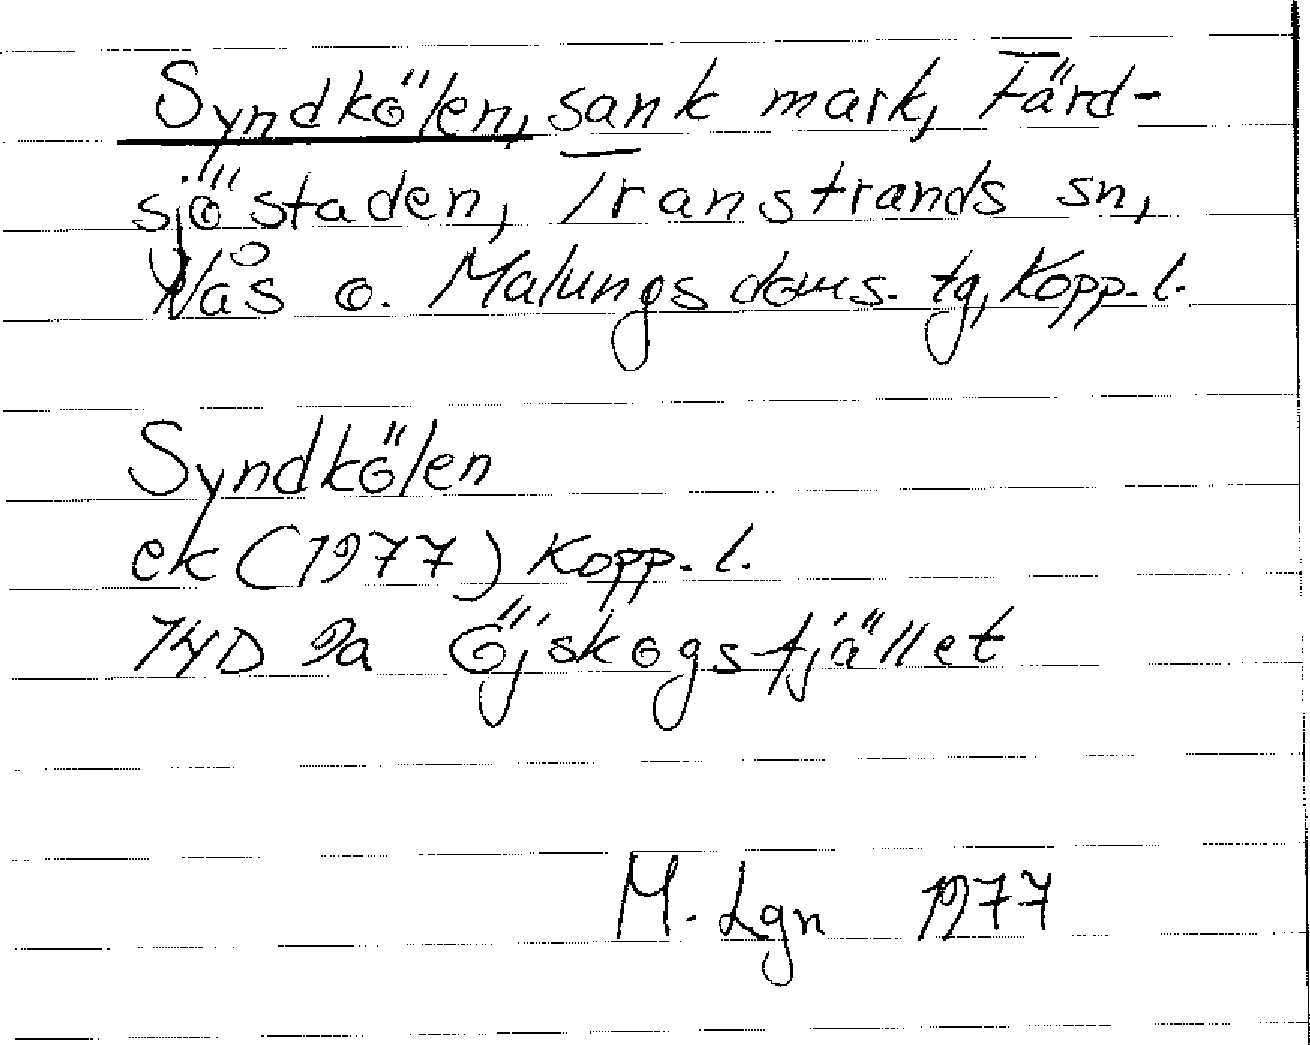 Syndkölen, sank mark, Färd-
sjöstaden, Transtrands sn,
Nås o. Malungs doms. tg, Kopp. l.
Syndkölen
ek (1977) Kopp. l.
14D 2a Öjskogsfjället
M. Lgn 1977